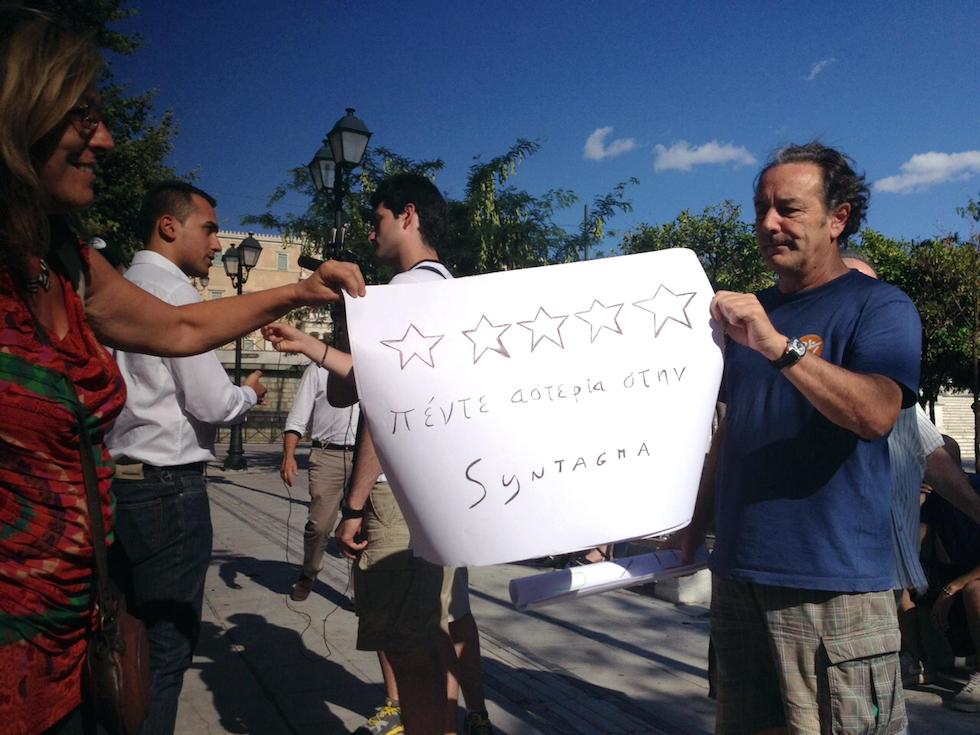 πέντε αστερία στην
SYNTAGMA